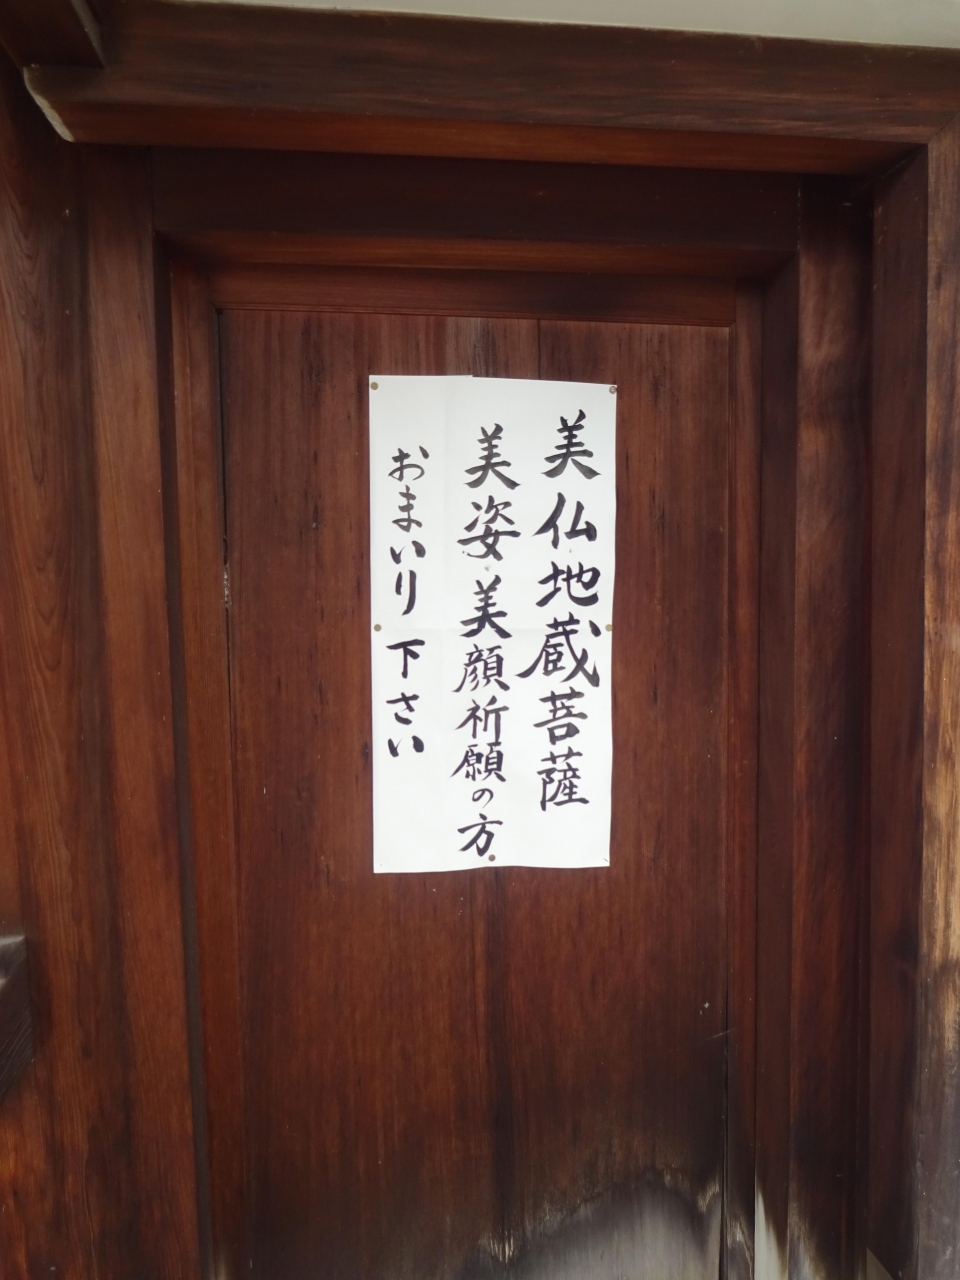 美仏地蔵菩薩
美姿・美顔祈願の方
おまいり下さい